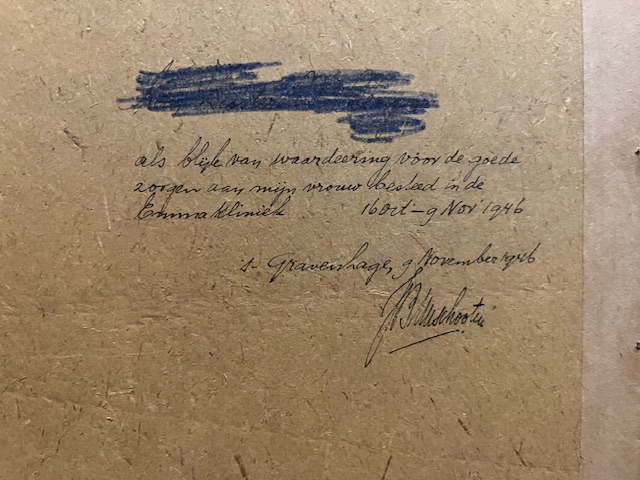 als blijk van waardeering voor de goede
zorgen aan mijn vrouw besteed in de
Emmakliniek 16 Oct – 9 Nov 1946
's Gravenhage, 9 November 1946